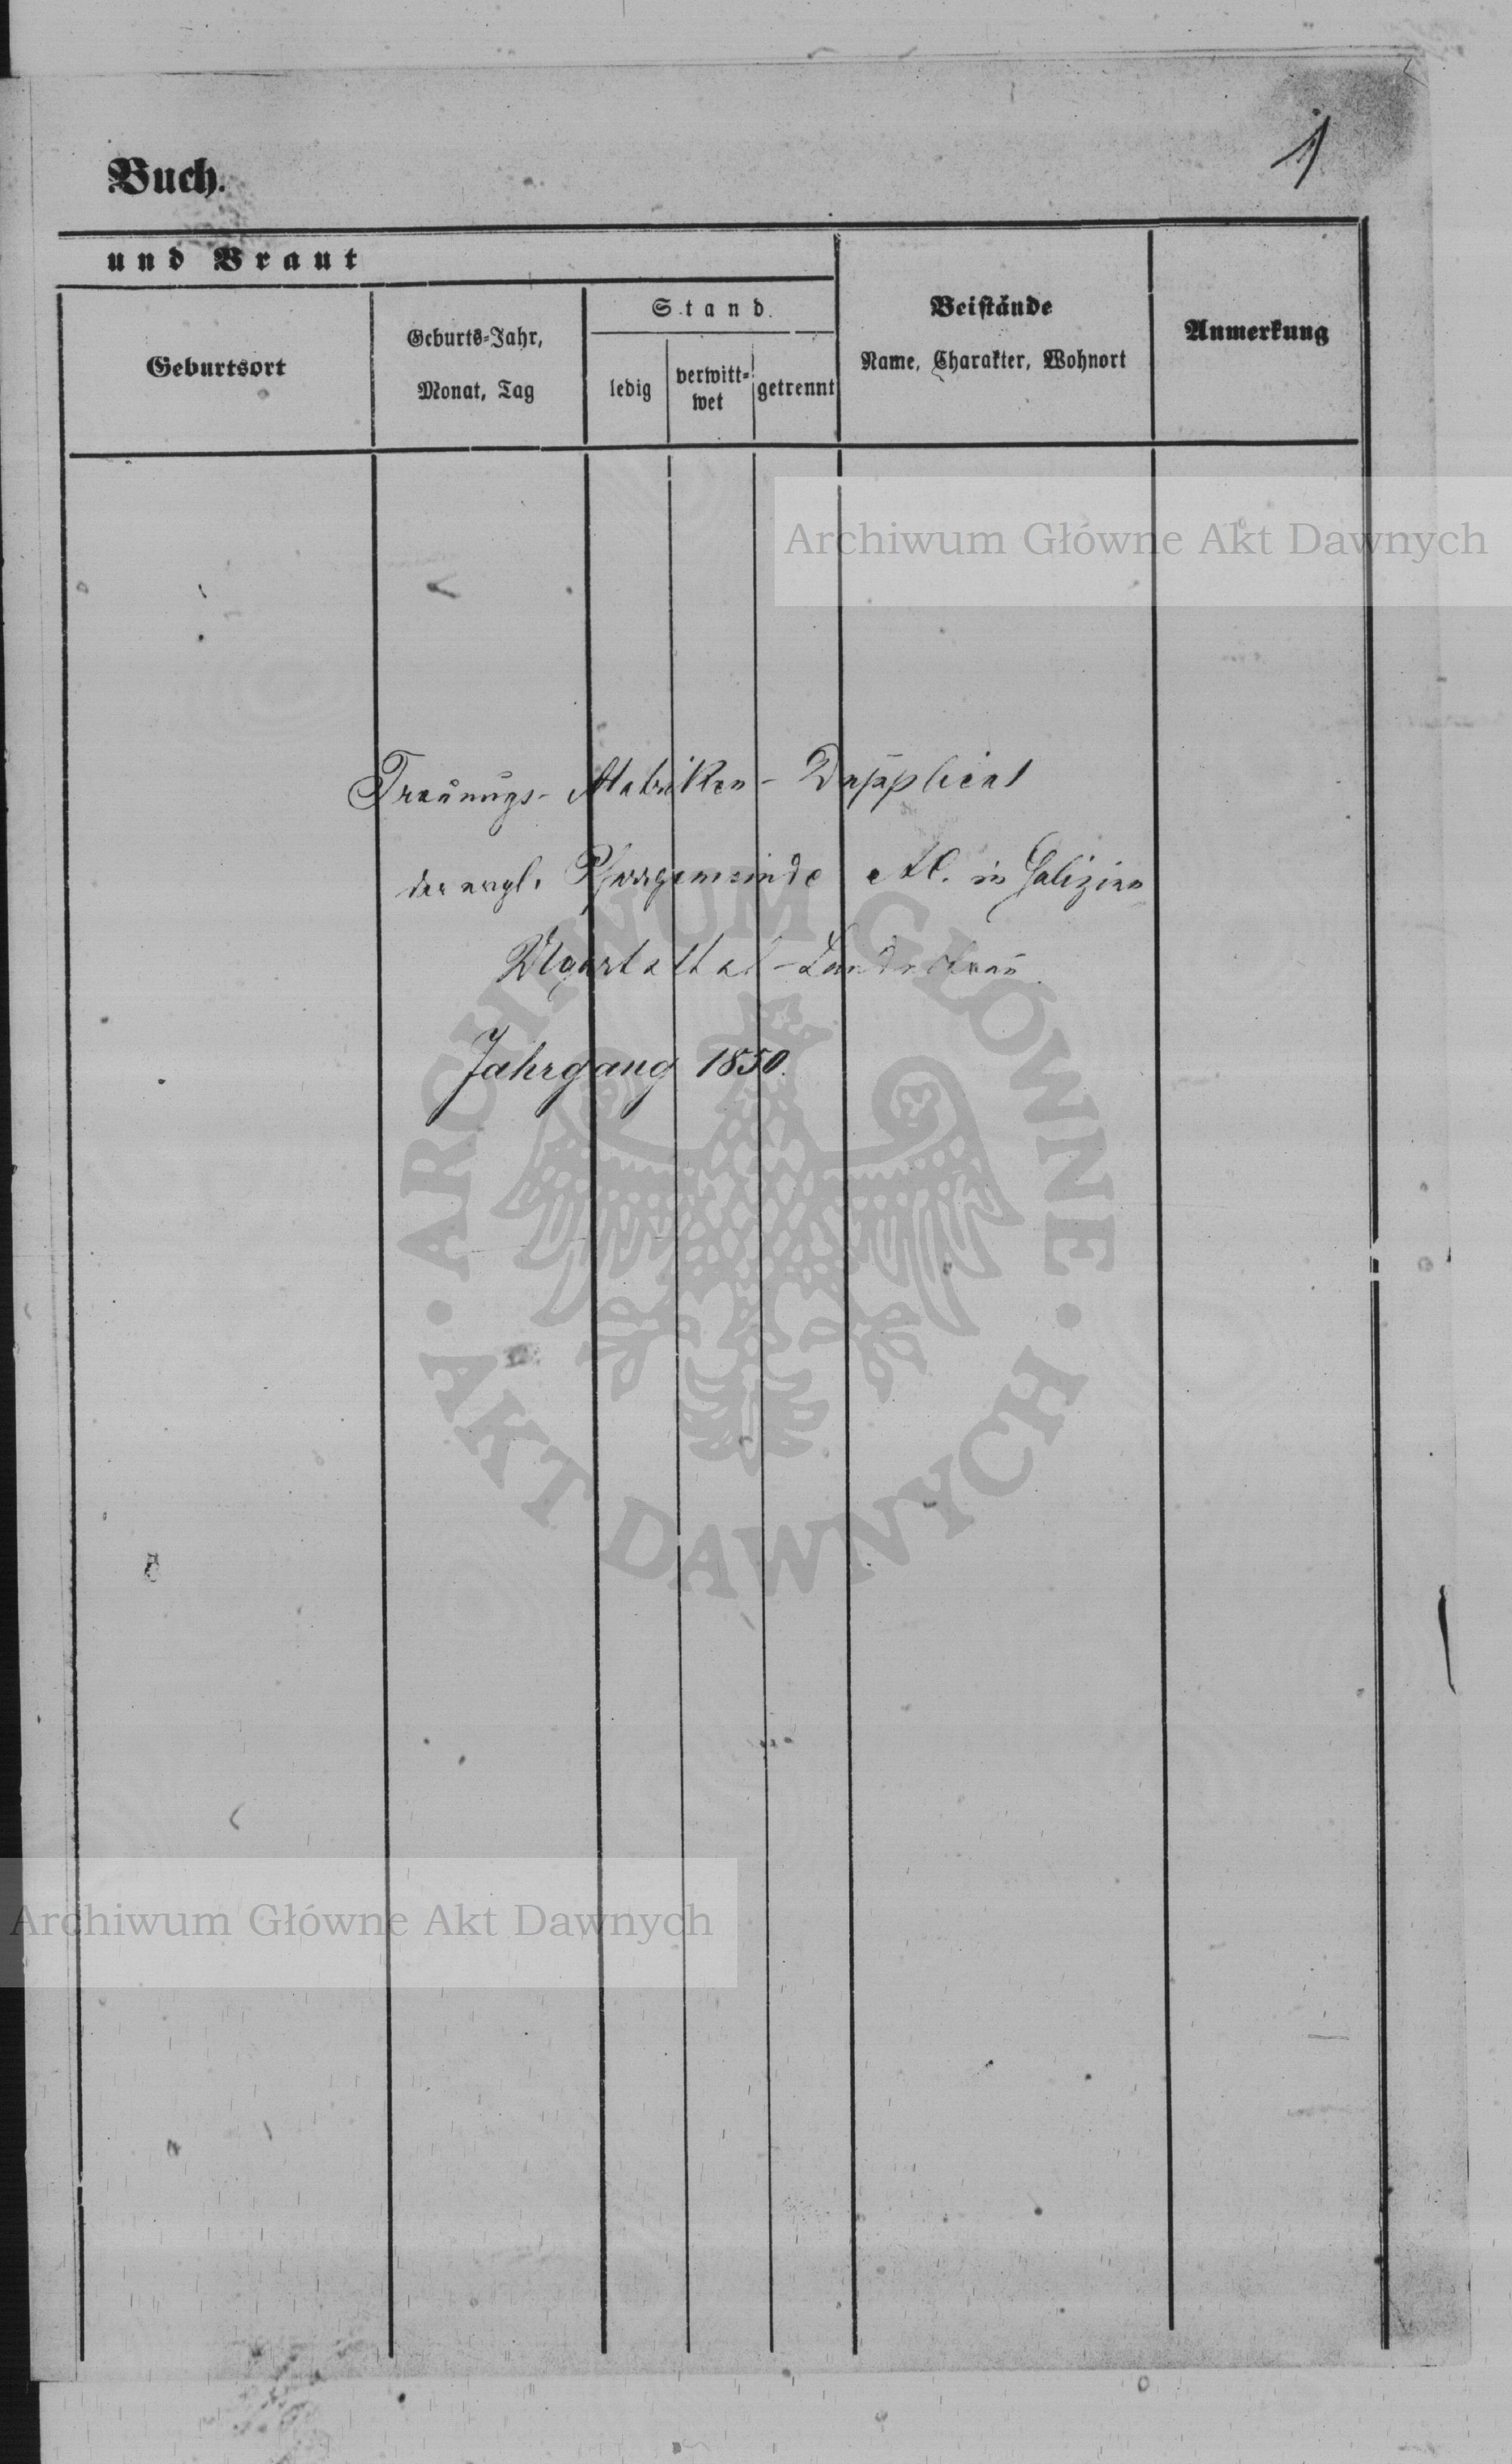 1
Buch.
und Braut
Geburtsort
Geburts-Jahr,
Monat, Tag
Stand.
ledig
verwitt-
wet
getrennt
Beistände
Name, Charakter, Wohnort
Anmerkung
Archiwum Główne Akt Dawnych
Trauungs-Matriken-Dupplicat
der evgl. Pfarrgemeinde A.C. in Galizien
Ugartsthal-Landestreu
Jahrgang 1850.
ARCHIWUM GŁÓWNE
AKT DAWNYCH
Archiwum Główne Akt Dawnych